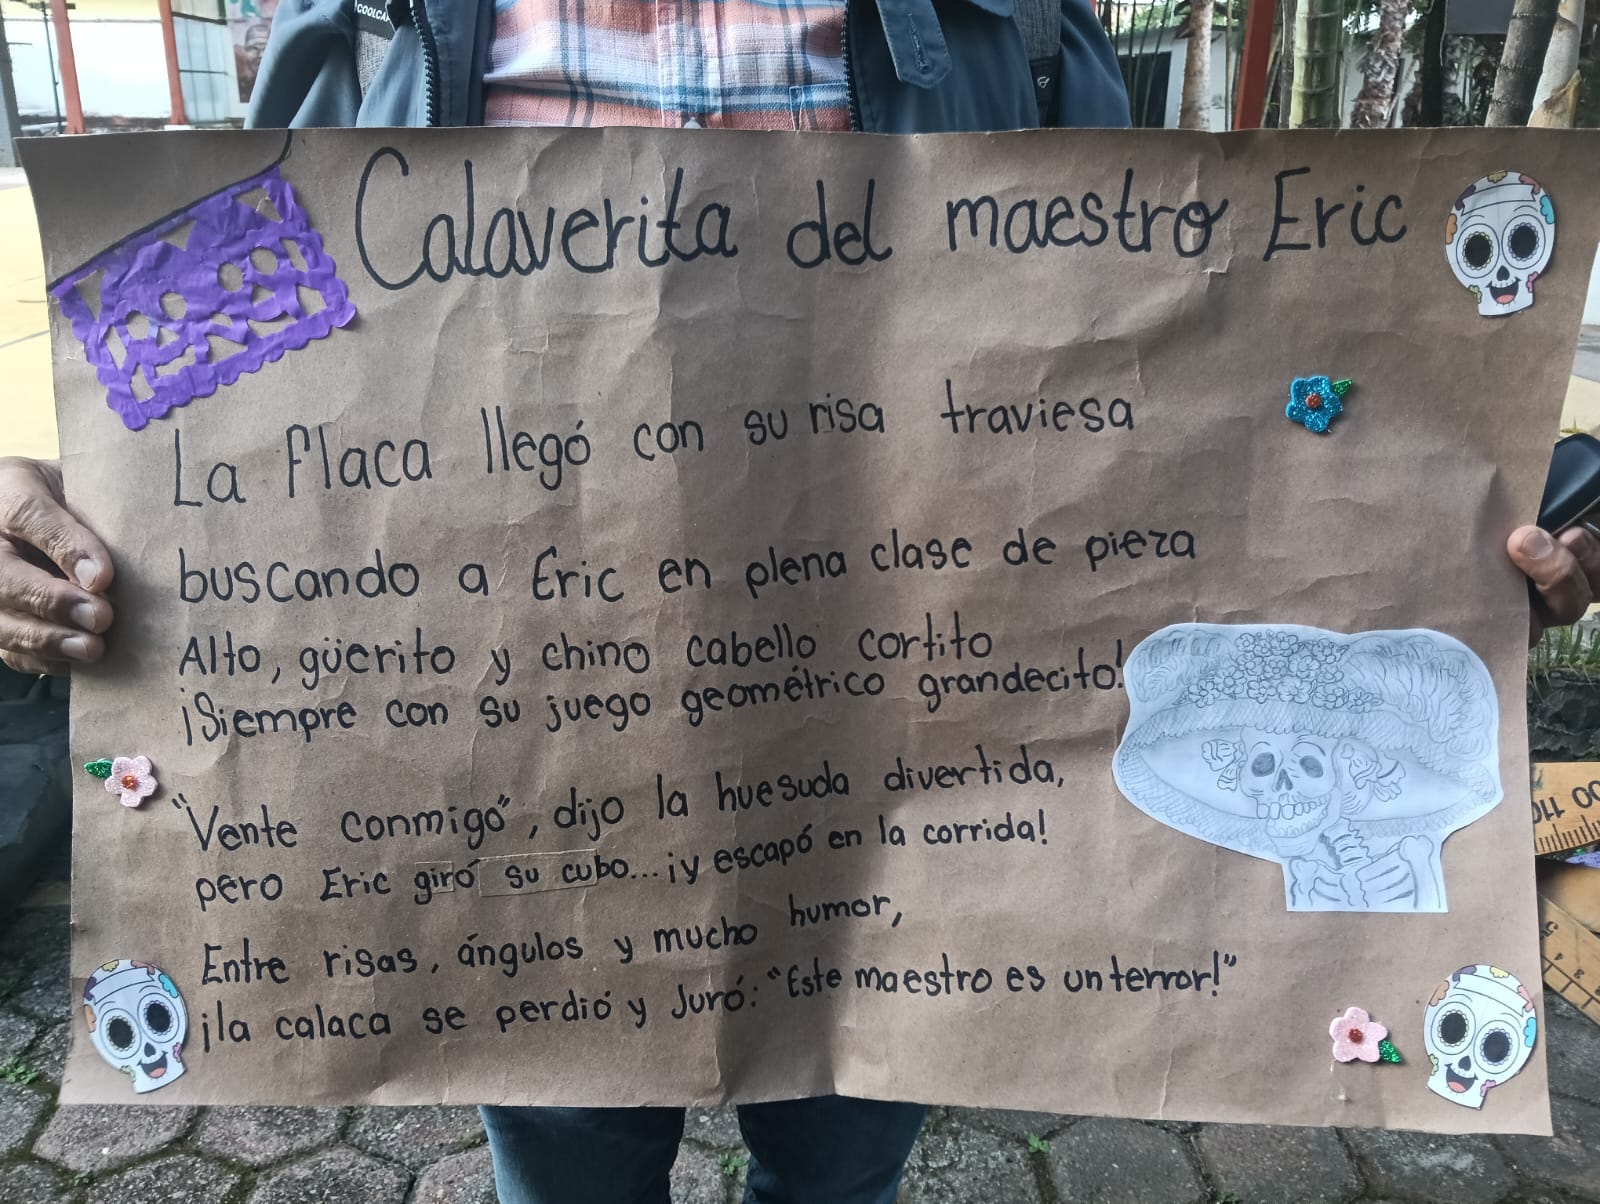 COOLCA
Calaverita del maestro Eric
La flaca llegó con su risa traviesa
buscando a Eric en plena clase de pieza
Alto, güerito y chino cabello cortito
¡Siempre con su juego geométrico grandecito!
"Vente conmigo", dijo la huesuda divertida,
pero Eric giró su cubo...¡y escapó en la corrida!
Entre risas, ángulos y mucho humor,
¡la calaca se perdió y Juró: "Este maestro es un terror!"
110